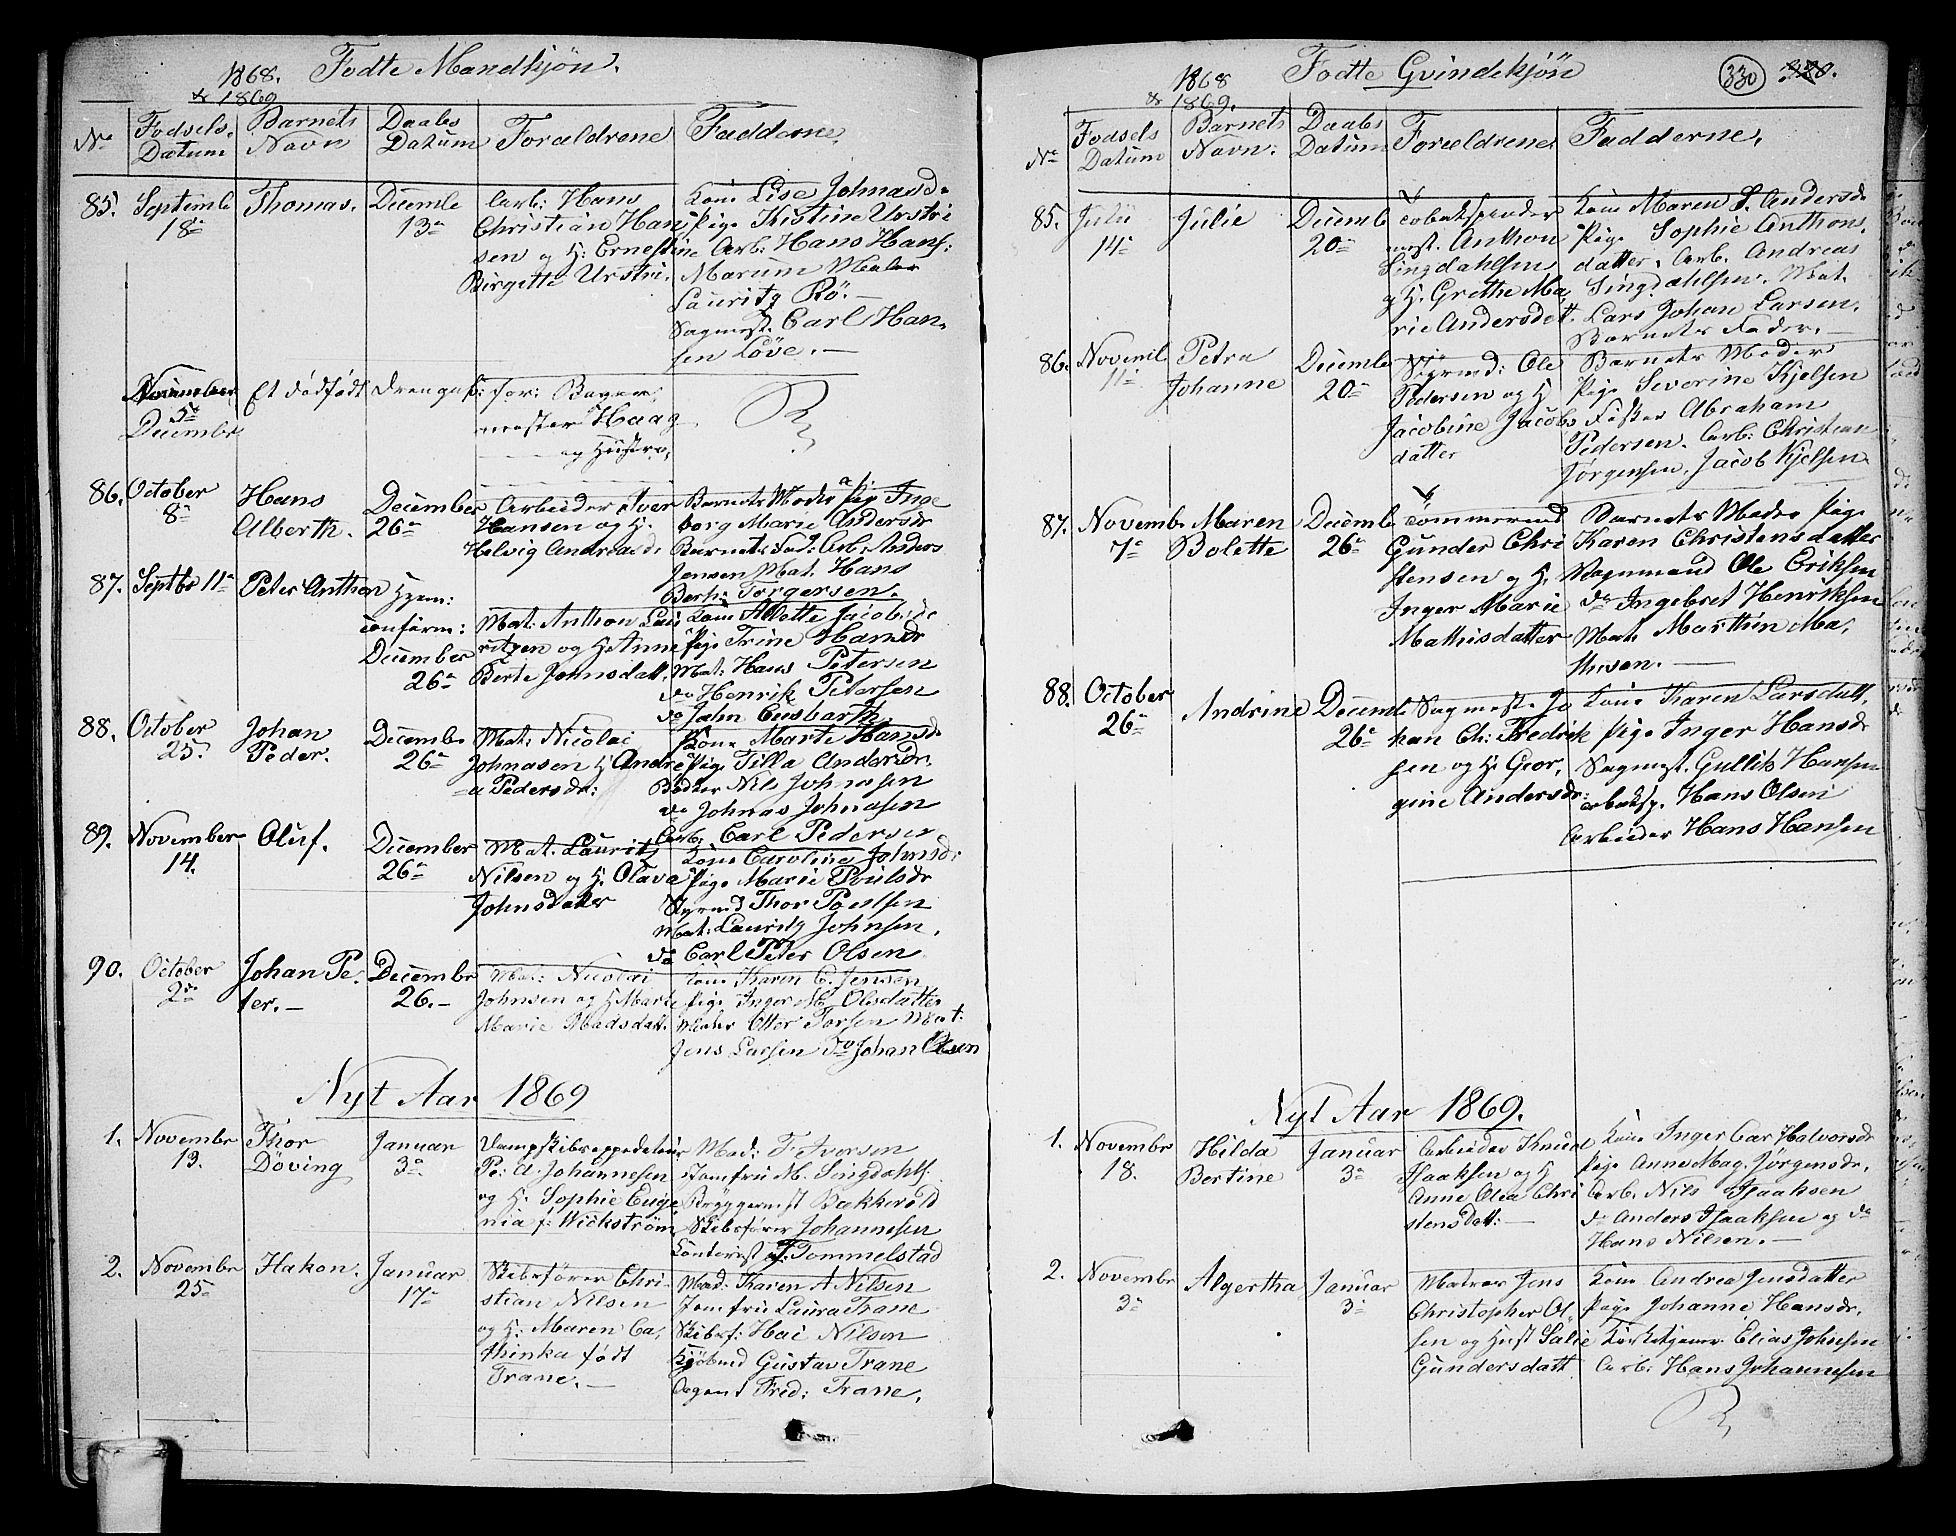 1868. Fodte Mandkjön.
& 1869
No Fodsels Datum Barnets Navn Daabs Datum Foraldrene Fadderne
85. Septemb 18de Thomas. Decembe 13de Arb: Hans
Christian Han
sen og H: Ernestine
Birgitte Urstri.
Kone Lise Johnasd.
Pige Kristine Urstri
Arb: Hans Hans:
Marum Maler
Lauritz Rö.
Sagmest. Carl Han,
sen Love.
5te December Et dödfödt Drengeb: for: Bager,
mester Haag
og Hustru,
86. October 8de Hans Alberth. December 26de Arbeider Iver
Hansen og H.
Helvig Andreasd:
Barnets Moder Pig. Inge
borg Marie Andersdr
Barnets Fad: Arb. Anders
Jensen Mat. Hans
Berth: Torgersen.
87. Septbr 11te Peter Anthon Hjem:
conferm:
December 26de
Mat. Anthon Lau
ritzen og H. Anne
Berte Johnsdatt.
Kone Alette Jacobsdr
Pige Trine Hansdr
Mat: Hans Petersen
do Henrik Petersen
do John Cusbarth
88. October 25. Johan Peder. Decembe 26de Mat. Nicolai
Johnasen H. Andre
a Pedersdr:
Kone Marte Hansdr
Pige Tilla Andersdr.
Bödker Nils Johnasen
do Johnas Johnasen
Arb: Carl Pedersen
89. November 14. Oluf. December 26de Mat. Lauritz
Nilsen og H. Olava
Johnsdatter
Kone Caroline Johnsdr
Pige Marie Poulsdr
Styrmd Thor Poulsen
Mat: Lauritz Johnsen,
do Carl Peter Olsen
90. October 2de Johan Pe-
ter.- Decembr 26.- Mat: Nicolai
Johnsen og H Marte
Marie Madsdatt.
Kone Karen C. Jensen
Pige Inger M. Olesdatter
Maler Otter Torsen Mat:
Jens Larsen Do Johan Olsen
Nyt Aar 1869
1. Novembr 13. Thor Döving Januar 3de Dampskibsexpediteur
P. A. Johannesen
og H. Sophie Euge,
nia f: Wickström
Mad: F. Iversen
Jomfru M. Lingdahls:
Bryggermest Bakkevold
Skibsförer Johannesen
Contorist J. Tommelstad
2. Novembr 25 Hakon. Januar 17de Skibsförer Chri-
stian Nilsen
og H. Maren Ca,
thinka født
Trane.
Mad: Karen A Nilsen
Jomfru Laura Trane
Skibsf: Hai Nilsen
Kjöbmd Gustav Trane
Agent Fred: Trane.
1868 Fodte Qvindekjön 330 330.
& 1869.
No Fodsels Datum Barnets Navn. Daabs Datum Foreldrene Fadderne.
85. Julii 14de Julie Decemb 20de Tobakspinder
mest. Anthon
Lingdahlsen
og H. Grethe Ma,
rie Andersdatt.
Kone Maren S. Andersdr
Pige Sophie Anthons,
datter. Arb. Andreas
Lingdahlsen. Mat.
Lars Johan Larsen.
Barnets Fader.
86. Novemb 11te Petra Johanne Decembe 20de Styrmd: Ole
Pedersen og H
Jacobine Jacobs
datter
Barnets Moder
Pige Severine Kjelsen
Fisker Abraham
Pedersen. Arb: Christian
Jörgensen, Jacob Kjelsen
87. Novembe 7de Maren Bolette Decembe 26de Tommermd
Gunder Chri
stensen og H.
Inger Marie
Mathisdatter
Barnets Moder Pige
Karen Christensdatter
Vognmand Ole Eriksen
do Ingebret Henriksen
Mat: Marthin Ma,
thisen.
88. October 26de Andrine Decembe 26de Sagmest. Jo
han Ch: Fredrik
sen og H. Geor,
gine Andersdr:
Kone Karen Larsdatt,
Pige Inger Hansdr
Sagmest. Gullik Hansen
Tobaksp. Hans Olsen
Arbeider Hans Hansen
Nyt Aar 1869.
1. Novembr 18. Hilda Bertine Januar 3de Arbeider Knud
Isaaksen og H
Anne Olea Chri
stensdatt:
Kone Inger Car Halvorsdr
Pige Anne Mag. Jörgensdr,
Arb. Nils Isaaksen
do Anders Isaaksen og do
Hans Nilsen.
2. Novembr 3de Algertha Januar 3de Matros Jens
Christopher Ol,
sen og Hust Salie
Gundersdatt
Kone Andrea Jensdatter
Pige Johanne Hansdr.
Kirketjener Elias Johnsen
Arb: Hans Johannesen